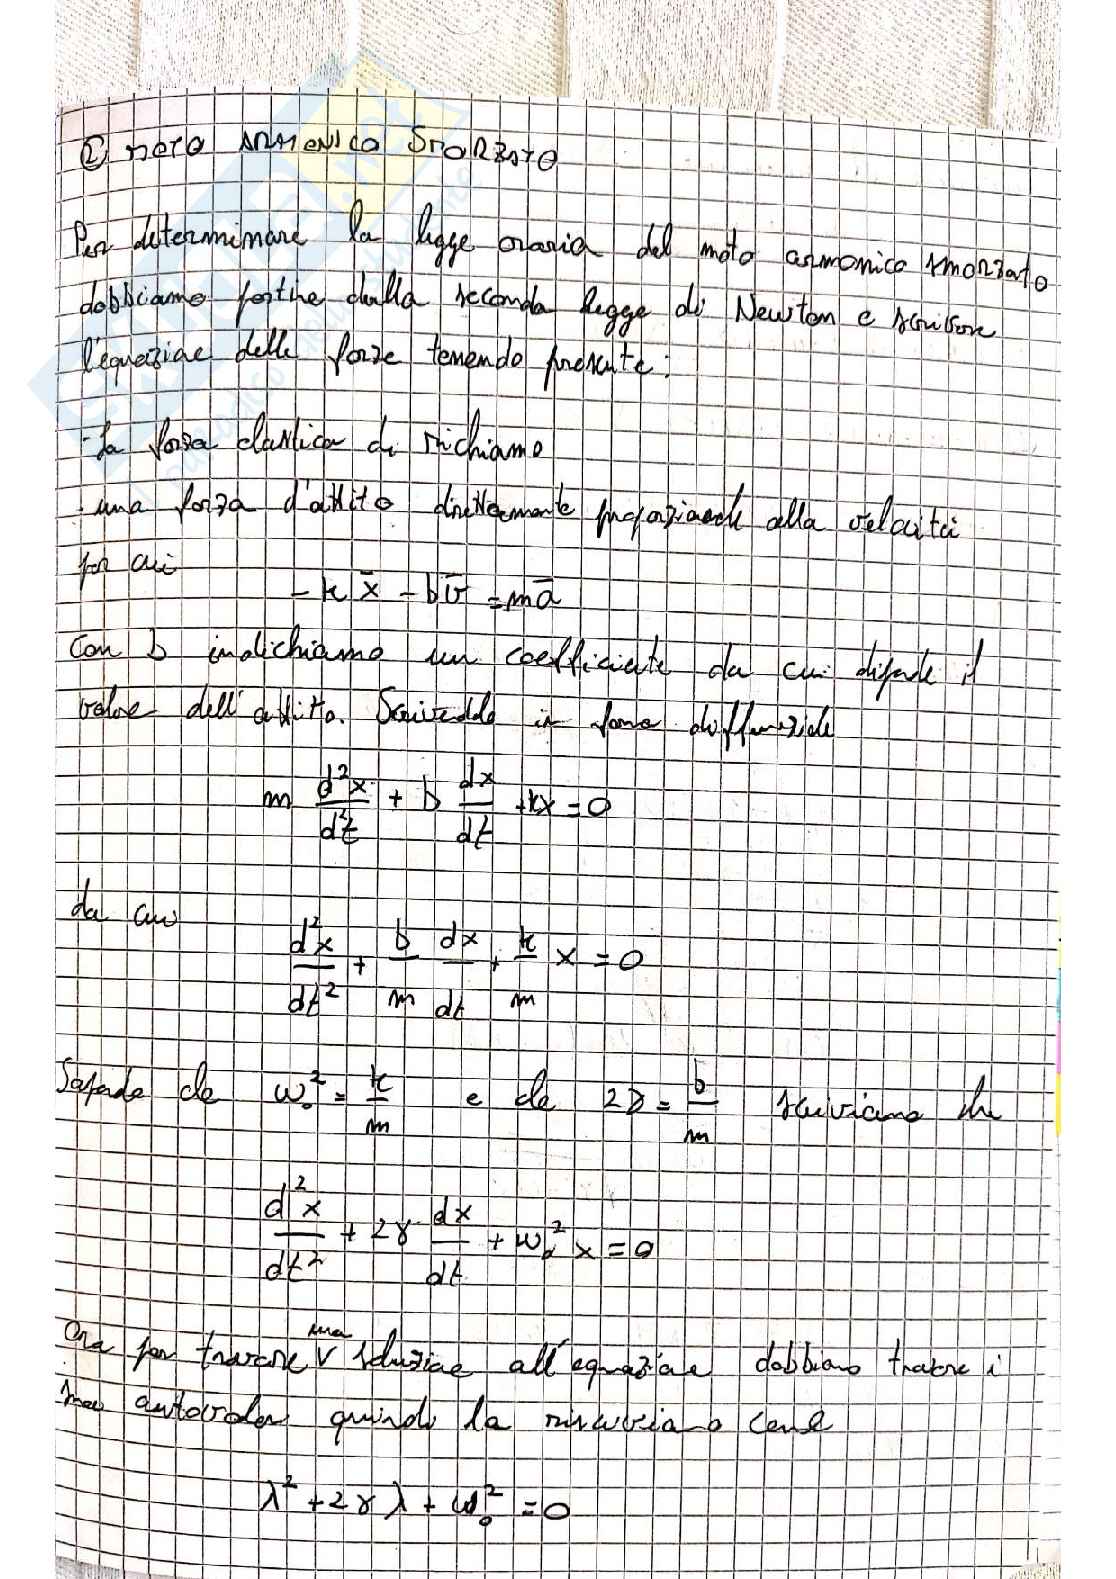 ② MOTO ARMONICO SMORZATO
Per determinare la legge oraria del moto armonico smorzato
dobbiamo partire dalla seconda legge di Newton e scrivere
l'equazione delle forze tenendo presente:
- la forza elastica di richiamo
- una forza d'attrito direttamente proporzionale alla velocità
per cui
-k x̄ - b v̄ = m ā
Con b indichiamo un coefficiente da cui dipende il
valore dell'attrito. Scrivendolo in forma differenziale
m d²x/d²t + b dx/dt + kx = 0
da cui
d²x/dt² + b/m dx/dt + k/m x = 0
Sapendo che ω₀² = k/m e che 2γ = b/m scriviamo che
d²x/dt² + 2γ dx/dt + ω₀² x = 0
Ora per trovare una soluzione all'equazione dobbiamo trovare i
suoi autovalori quindi la riscriviamo come
λ² + 2γλ + ω₀² = 0